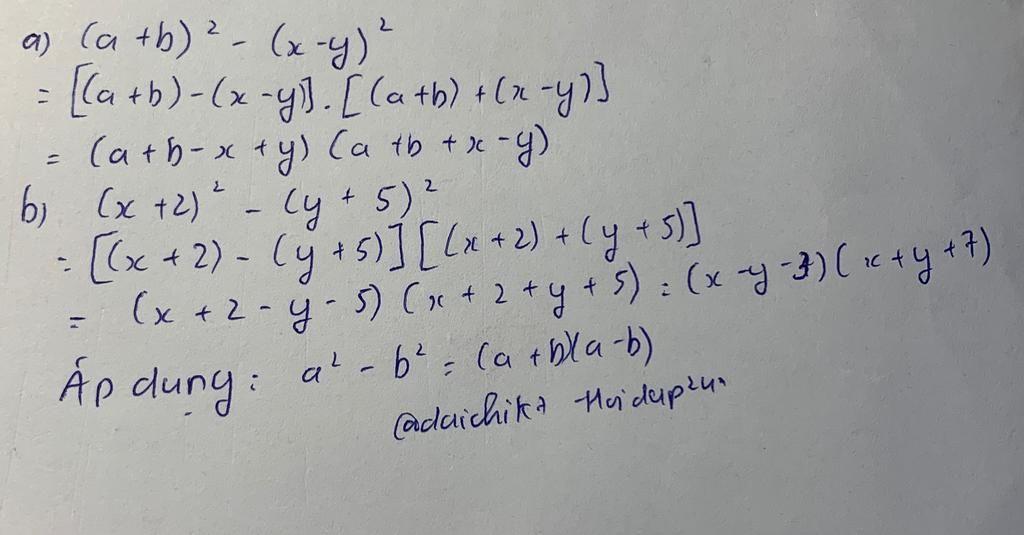 a) (a+b)² - (x-y)²
= [(a+b)-(x-y)].[(a+b)+(x-y)]
= (a+b-x+y)(a+b+x-y)
b) (x+2)² - (y+5)²
= [(x+2)-(y+5)][(x+2)+(y+5)]
= (x+2-y-5)(x+2+y+5) = (x-y-3)(x+y+7)
Áp dụng: a² - b² = (a+b)(a-b)